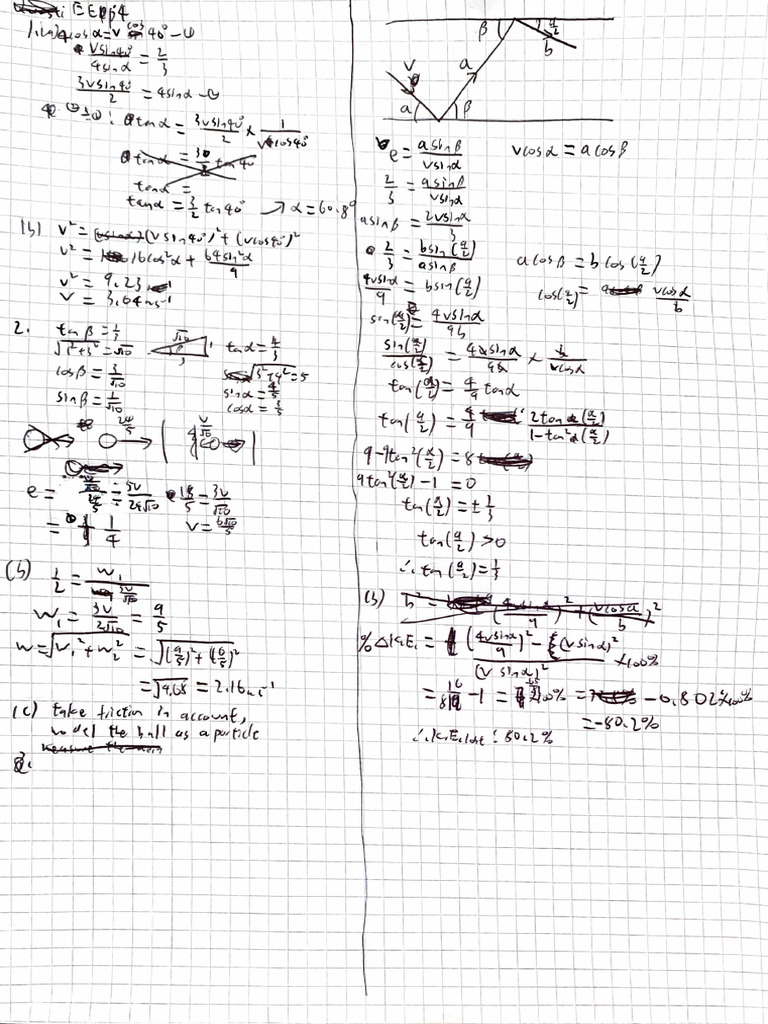 EEpp4
1.(a) 4cosα = v cos 40° — ①
vsin40°/4sinα = 2/3
3vsin40°/2 = 4sinα — ②
②÷①: tanα = 3vsin40°/2 × 1/vcos40°
tanα =
tanα = 3/2 tan40° → α = 60.8°
(b) v² = (vsin40°)² + (vcos40°)²
v² = 16cos²α + 64sin²α/9
v² = 9.23
v = 3.04 ms⁻¹
2. tanβ = 1/3
√1²+3² = √10
√10 1 β 3
tanα = 4/3
cosβ = 3/√10
√3²+4² = 5
sinβ = 1/√10
sinα = 4/5
cosα = 3/5
24/5
v/√10
e = (v/√10)/(24/5) = 5v/24√10
18/5 = 3v/√10
= 1/4
v = 6√10/5
(b) 1/2 = w₁/(3v/√10)
w₁ = 3v/2√10 = 9/5
w = √w₁²+w₂² = √(9/5)²+(6/5)²
= √4.68 = 2.16 ms⁻¹
(c) take friction in account,
model the ball as a particle
β α/2 b
a
v
α β
e = asinβ/vsinα
vcosα = acosβ
2/3 = asinβ/vsinα
asinβ = 2vsinα/3
2/3 = bsin(α/2)/asinβ
acosβ = bcos(α/2)
4vsinα/9 = bsin(α/2)
cos(α/2) = vcosα/b
sin(α/2) = 4vsinα/9b
sin(α/2)/cos(α/2) = 4vsinα/9b × b/vcosα
tan(α/2) = 4/9 tanα
tan(α/2) = 4/9 2tan(α/2)/1-tan²(α/2)
9-9tan²(α/2) = 8
9tan²(α/2) - 1 = 0
tan(α/2) = ±1/3
tan(α/2) > 0
∴ tan(α/2) = 1/3
(b)
%ΔK.E. = (4vsinα/9)² - (vsinα)² / (vsinα)² × 100%
= 16/81 - 1 = -0.802×100%
= -80.2%
∴ K.E. lost: 80.2%